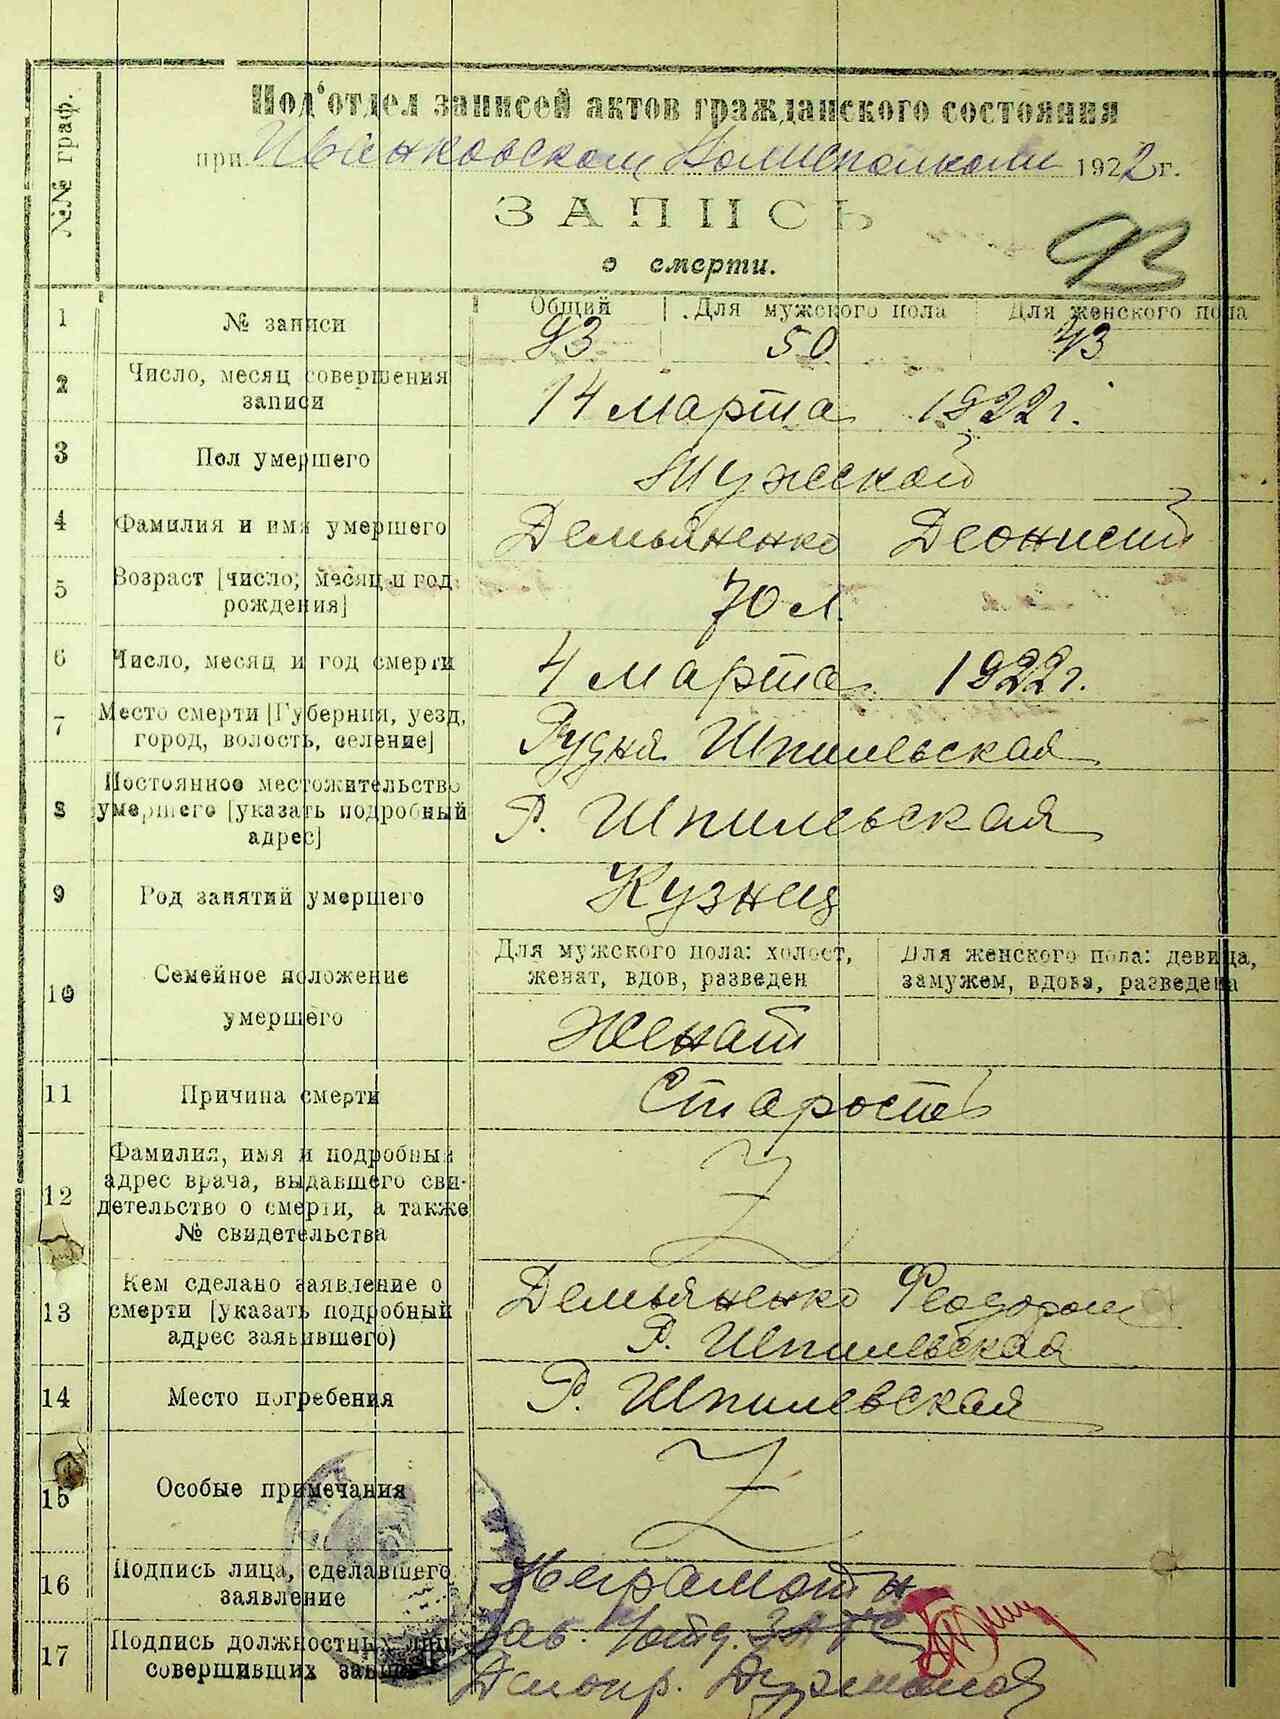 Под'отдел записей актов гражданского состояния
при Иванковском Волисполкоме 1922 г.
ЗАПИСЬ
о смерти.
93
№№ граф.
1 № записи Общий Для мужского пола Для женского пола
93 50 43
2 Число, месяц совершения
записи 14 марта 1922 г.
3 Пол умершего Мужской
4 Фамилия и имя умершего Демьяненко Деонисий
5 Возраст [число, месяц и год
рождения] 70 л.
6 Число, месяц и год смерти 4 марта 1922 г.
7 Место смерти [Губерния, уезд,
город, волость, селение] Рудня Шпилевская
8 Постоянное местожительство
умершего [указать подробный
адрес] Р. Шпилевская
9 Род занятий умершего Кузнец
10 Семейное положение
умершего
Для мужского пола: холост,
женат, вдов, разведен
Для женского пола: девица,
замужем, вдова, разведена
Женат
11 Причина смерти Старость
12 Фамилия, имя и подробный
адрес врача, выдавшего сви-
детельство о смерти, а также
№ свидетельства
13 Кем сделано заявление о
смерти [указать подробный
адрес заявившего) Демьяненко Феодором
Р. Шпилевская
14 Место погребения Р. Шпилевская
15 Особые примечания
16 Подпись лица, сделавшего
заявление Неграмотн
17 Подпись должностных лиц,
совершивших запись Зав. ЗАГС
Делопр.